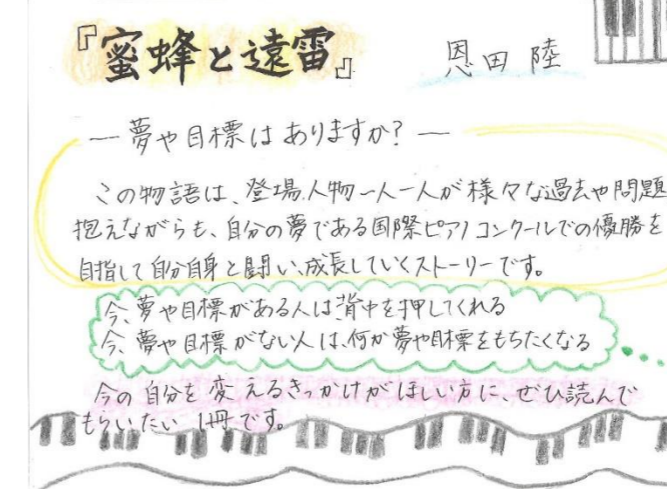 『蜜蜂と遠雷』 恩田陸
― 夢や目標はありますか? ―
この物語は、登場人物一人一人が様々な過去や問題
抱えながらも、自分の夢である国際ピアノコンクールでの優勝を
目指して自分自身と闘い、成長していくストーリーです。
今、夢や目標がある人は背中を押してくれる
今、夢や目標がない人は、何か夢や目標をもちたくなる
今の自分を変えるきっかけがほしい方に、ぜひ読んで
もらいたい1冊です。